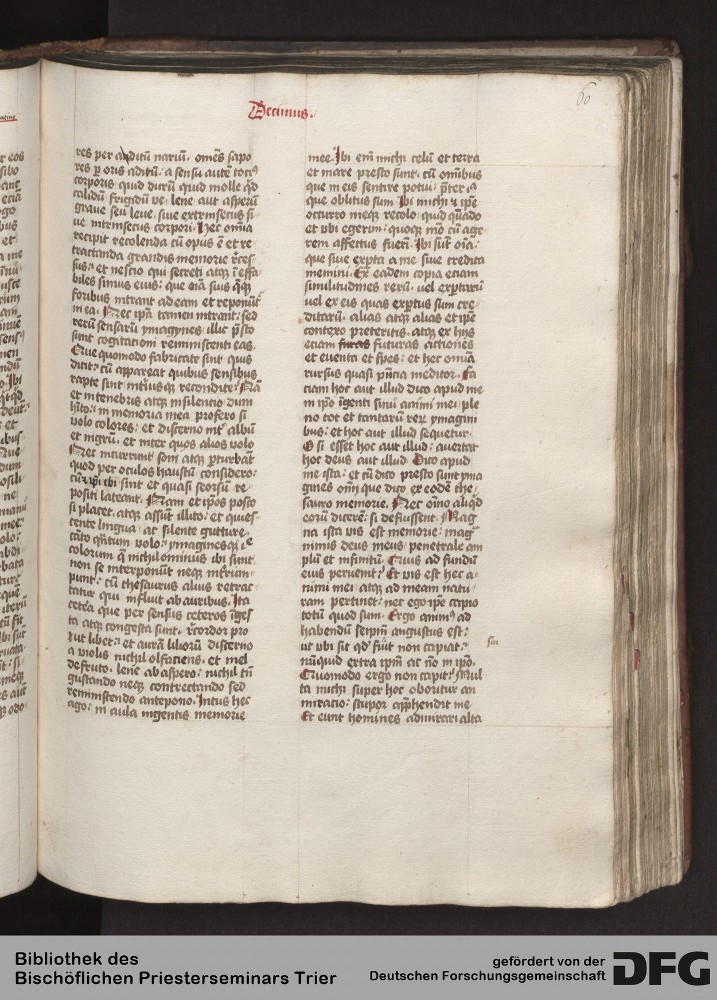 Decimus.
60
res per aditū nariū. omēs sapo
res ꝑ oris aditū. a sensu autē tociꝰ
corporis quid durū quid molle qͥd
calidū frigidū ve lene aut asperū
graue seu leue. siue extrinsecus si
ue intrinsecus corpori. Hec om̄ia
recipit recolenda cū opus ē et re
tractanda grandis memorie r̄ces
sus. et nescio qui secreti atqꝫ ineffa
biles sinus eius. que oīa suis qͥqꝫ
foribus intrant ad eam et reponūt᷑
in ea. Nec ip̄a tamen intrant. sed
rerū sensarū ymagynes illic p̄sto
sunt cogitationi reminiscenti eas.
Que quomodo fabricate sint quis
dicit. cū appareat quibus sensibus
rapte sint int᷑iusqꝫ recondite. Nā
et in tenebris atqꝫ in silentio dum
hīto. in memoria mea profero si
volo colores. et discerno int᷑ albū
et nigrū. et inter quos alios volo
Nec incurrunt soni atqꝫ ꝑturbāt
quod per oculos haustū considero.
cū et ip̄i ibi sint et quasi seorsū re
positi lateant. Nam et ip̄os posco
si placet. atqꝫ assūt illico. et quies
cente lingua ac silente gutture.
cāto qͣntum volo. ymaginesqꝫ ille
colorum q̄ nichilominus ibi sunt
non se interponūt neqꝫ int᷑rum
punt. cū thesaurus alius retrac
tatur qui influit ab auribus. Ita
cetera que per sensus ceteros īges
ta atqꝫ congesta sunt. r̄cordor pro
ut libet. et aurā liliorū discerno
a violis nichil olfaciens. et mel
defruto. lene ab aspero. nichil tn̄
gustando neqꝫ contrectando sed
reminiscendo antepono. Intus hec
ago. in aula ingentis memorie
mee. Ibi em̄ michi celū et terra
et mare presto sunt. cū om̄ibus
que in eis sentire potui. p̄ter ea
que oblitus sum. Ibi michi et ip̄e
occurro meqꝫ recolo quid qn̄ado
et vbi egerim. quoqꝫ mō cū age
rem affectus fuerī. Ibi sūt oīa.
que siue expta a me siue credita
memini. Ex eadem copia eciam
similitudines rerū. vel exꝑtarū
vel ex eis quas exꝑtus sum cre
ditarū. alias atqꝫ alias et ip̄e
contexo preteritis. atqꝫ ex hijs
etiam furas futuras actiones
et euenta et spes. et hec om̄ia
rursus quasi pn̄cia meditor. Fa
ciam hoc aut illud dico apud me
in ip̄o īgenti sinu animi mei ple
no tot et tantarū rerꝝ ymagini
bus. et hoc aut illud sequetur.
O si esset hoc aut illud. auertat
hoc deus aut illud. Dico apud
me ista. et cū dico presto sunt yma
gines om̄i que dico ex eodē the
sauro memorie. Nec om̄o aliqͥd
eorū dicerē. si defuissent. Mag
na ista vis est memorie. mag
nimis deus meus. penetrale am
plū et infinitū. Quis ad fundū
eius peruenit? Et vis est hec a
nimi mei. atqꝫ ad meam natu
ram pertinet. nec ego ip̄e capio
totū quod sum. Ergo animꝰ ad
habendū seip̄m angustus est.
ut vbi sit qd̓ sui nō capiat.
nūquid extra ip̄m ac nō in ip̄o.
Quomodo ergo non capit? Mul
ta michi super hoc oboritur am
miracio. stupor app̄hendit me
Et eunt homines admirari alta
Bibliothek des
Bischöflichen Priesterseminars Trier
gefördert von der
Deutschen Forschungsgemeinschaft
DFG